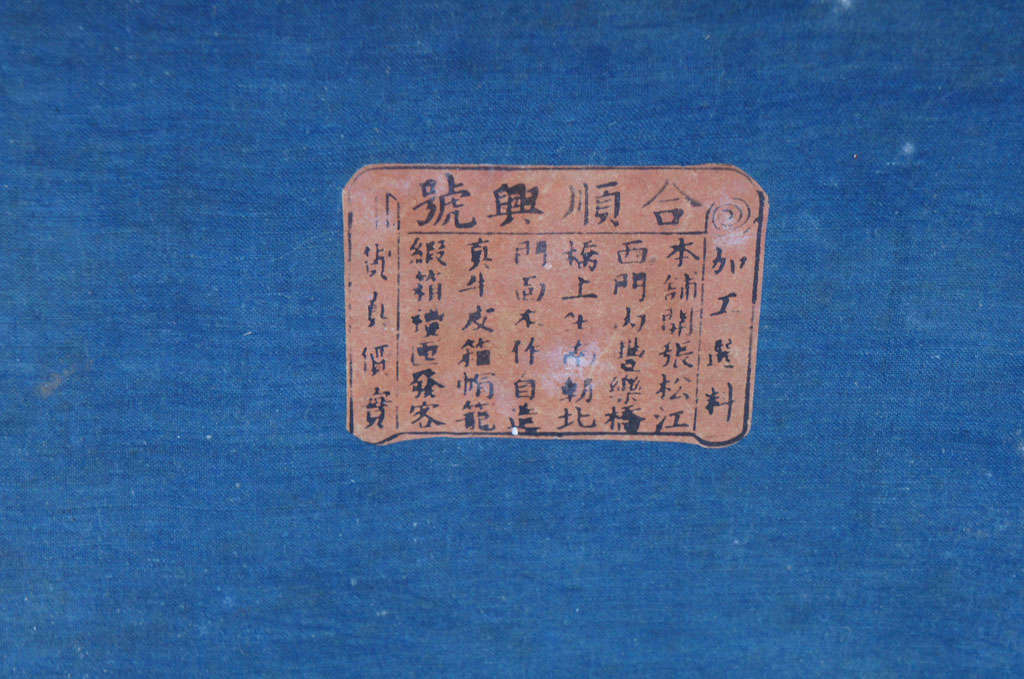 合順興號
加工選料
本舖開張松江
西門外豐樂橋
橋上坐南朝北
門面木作自造
真牛皮箱帽籠
緞箱發客
貨真價實